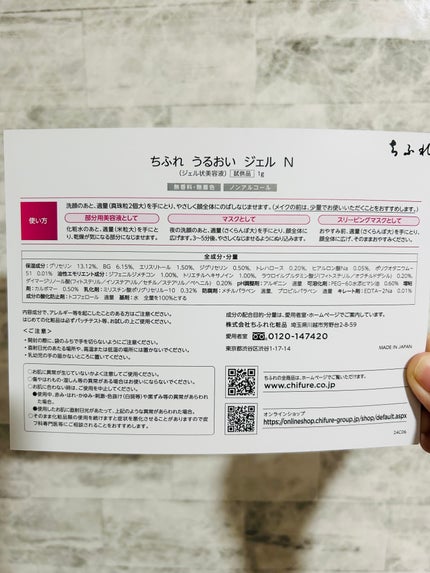 ちふれ
ちふれ うるおい ジェル N
(ジェル状美容液) 試供品 1g
無香料・無着色 ノンアルコール
使い方
洗顔のあと、適量(真珠粒2個大)を手にとり、やさしく顔全体にのばしなじませます。(メイクの前は、少量でお使いいただくことをおすすめします。)
部分用美容液として
化粧水のあと、適量(米粒大)を手にと
り、乾燥が気になる部分になじませます。
マスクとして
夜の洗顔のあと、適量(さくらんぼ大)を手にとり、顔全体に
広げます。3~5分後、やさしくなじませるようにぬり込みます。
スリーピングマスクとして
おやすみ前、適量(さくらんぼ大)を手にとり、
顔全体に広げ、そのままおやすみください。
全成分・分量
保湿成分:グリセリン 13.12%、BG 6.15%、エリスリトール 1.50%、ジグリセリン 0.50%、トレハロース 0.20%、ヒアルロン酸Na 0.05%、ポリクオタニウム-
51 0.01% 油性エモリエント成分:ジフェニルジメチコン 1.00%、トリエチルヘキサノイン 1.00%、ラウロイルグルタミン酸ジ(フィトステリル/オクチルドデシル) 0.20%、
ダイマージリノール酸(フィトステリル/イソステアリル/セチル/ステアリル/ベヘニル) 0.20% pH調整剤:アルギニン 適量 可溶化剤:PEG-60水添ヒマシ油 0.60% 増粘
剤:カルボマー 0.50% 乳化剤:ミリスチン酸ポリグリセリル-10 0.32% 防腐剤:メチルパラベン 適量、プロピルパラベン 適量 キレート剤:EDTA-2Na 0.01%
成分の酸化防止剤:トコフェロール 適量 基剤:水 全量を100%とする
内容成分で、アレルギー等を起こしたことのある方はご注意ください。
はじめての化粧品は必ずパッチテスト等、お試しの上ご使用ください。
<ご注意>
・開封の際に、袋のふちで手を切らないようにご注意ください。
・直射日光のあたる場所や、高温または低温の場所には置かないでください。
・乳幼児の手の届かないところに置いてください。
○お肌に異常が生じていないかよく注意してご使用ください。
●傷やはれもの・湿しん等の異常がある場合はお使いにならないでください。
○お肌に合わない時は、ご使用を中止してください。
●使用中、赤み・はれ・かゆみ・刺激・色抜け(白斑等)や黒ずみ等の異常があらわ
れた場合。
●使用したお肌に直射日光があたって、上記のような異常があらわれた場合。
○そのまま化粧品類の使用を続けますと症状を悪化させることがありますので皮
フ科専門医等にご相談されることをおすすめします。
成分の配合目的・分量は、愛用者室・ホームページでご案内しています。
株式会社ちふれ化粧品 埼玉県川越市芳野台2-8-59
愛用者室 0120-147420
東京都渋谷区渋谷1-17-14
MADE IN JAPAN
ちふれの全商品は、ホームページでご覧いただけます。
www.chifure.co.jp
オンラインショップ
https://onlineshop.chifure-group.jp/shop/default.aspx
24C26